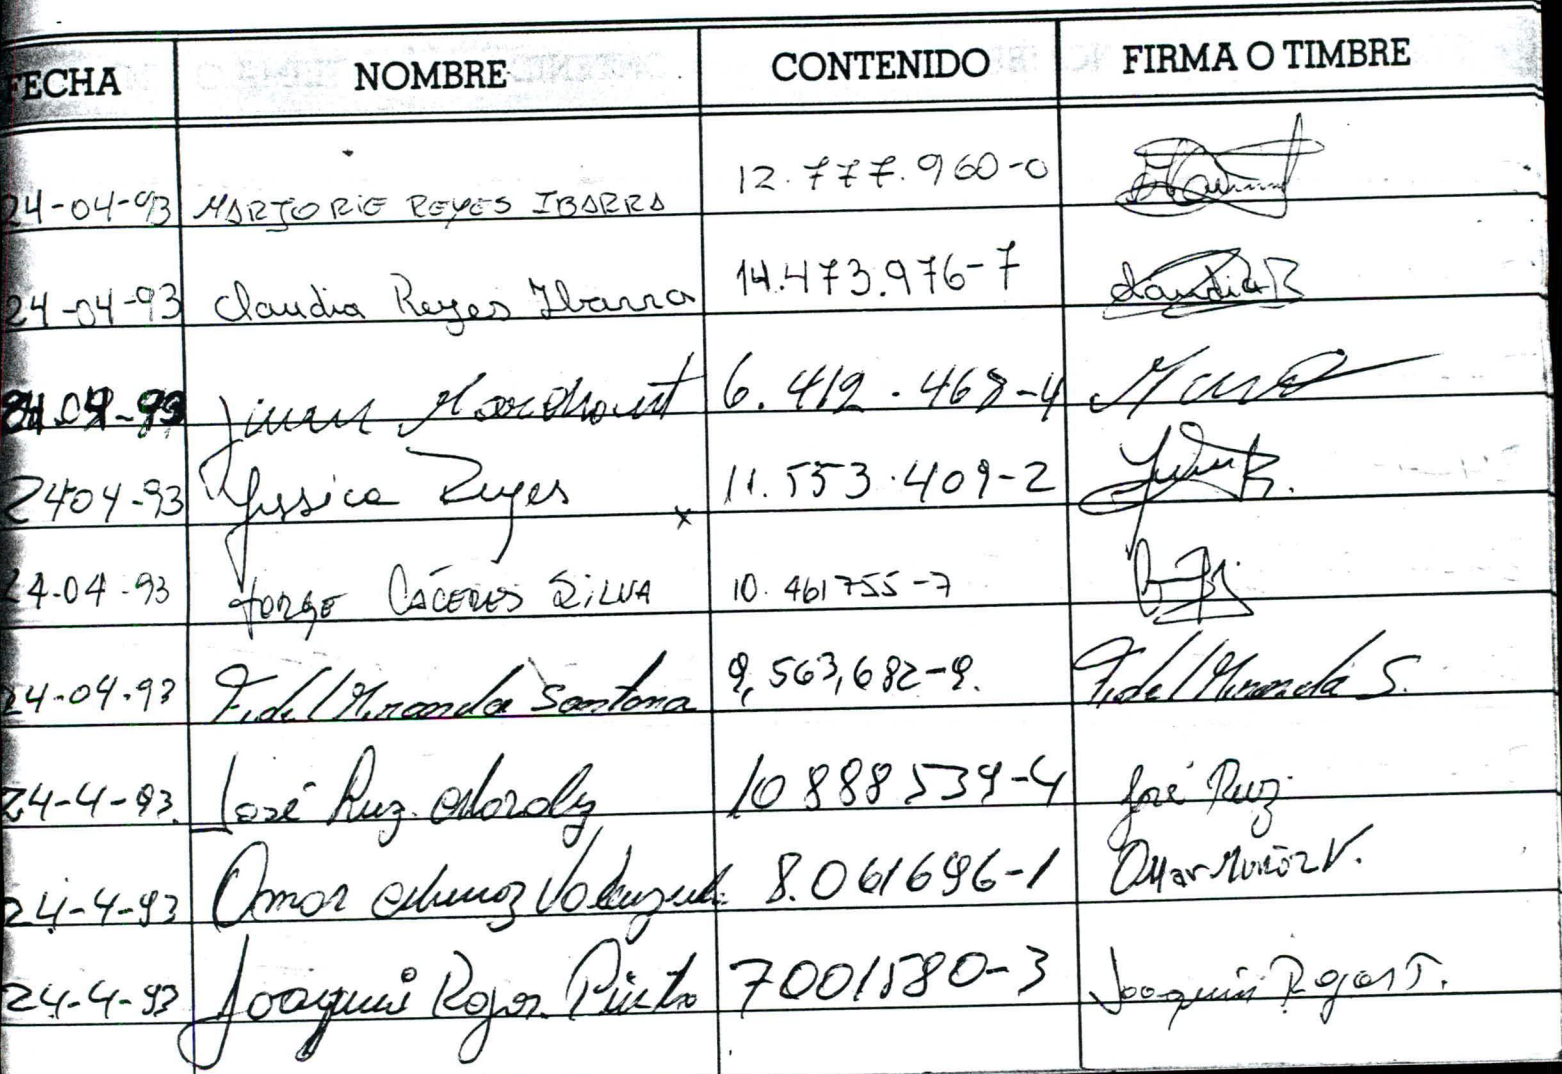 FECHA NOMBRE CONTENIDO FIRMA O TIMBRE
24-04-93 MARJORIE REYES IBARRA 12.777.960-0
24-04-93 Claudia Reyes Ibarra 14.473.976-7 Claudia R
6.412.468-4
2404-93 Yessica Reyes x 11.553.409-2
24-04-93 JORGE CÁCERES SILVA 10.461755-7
24-04-93 Fidel Miranda Santana 9,563,682-9. Fidel Miranda S.
24-4-93. José Ruz 10888539-4 José Ruz
24-4-93 Omar Muñoz Valenzuela 8.061696-1 Omar Muñoz V.
24-4-93 Joaquin Rojas Pinto 7001580-3 Joaquin Rojas